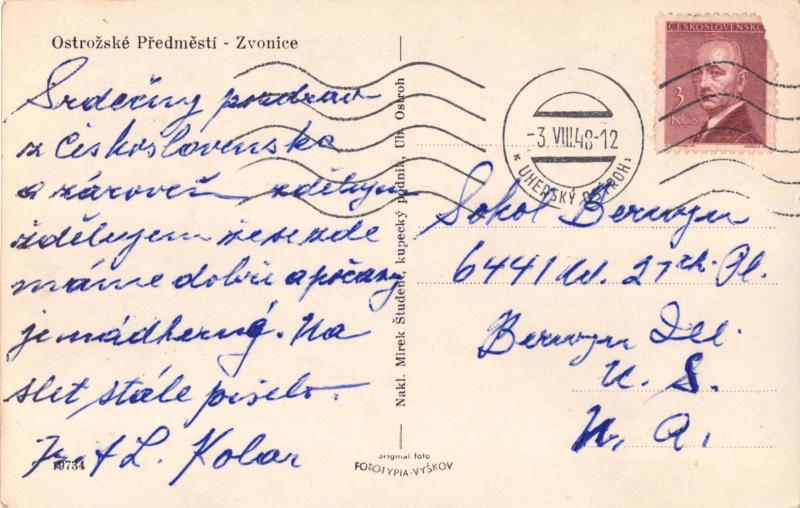 Ostrožské Předměstí - Zvonice
Srdečný pozdrav
z Československa
a zároveň zdělujem
zdělujem že se zde
máme dobři a počasy
je nádherný. Na
slet stále pršelo.
+ L. Kolar
19734
Nakl. Mirek Študent, kupecký podnik, Uh. Ostroh
original foto
FOTOTYPIA-VYŠKOV
ČESKOSLOVENSKO
3
KČS
-3. VIII. 48-12
UHERSKÝ OSTROH
Sokol Berwyn
6441 W. 27th. Pl.
Berwyn Ill.
U. S.
A.